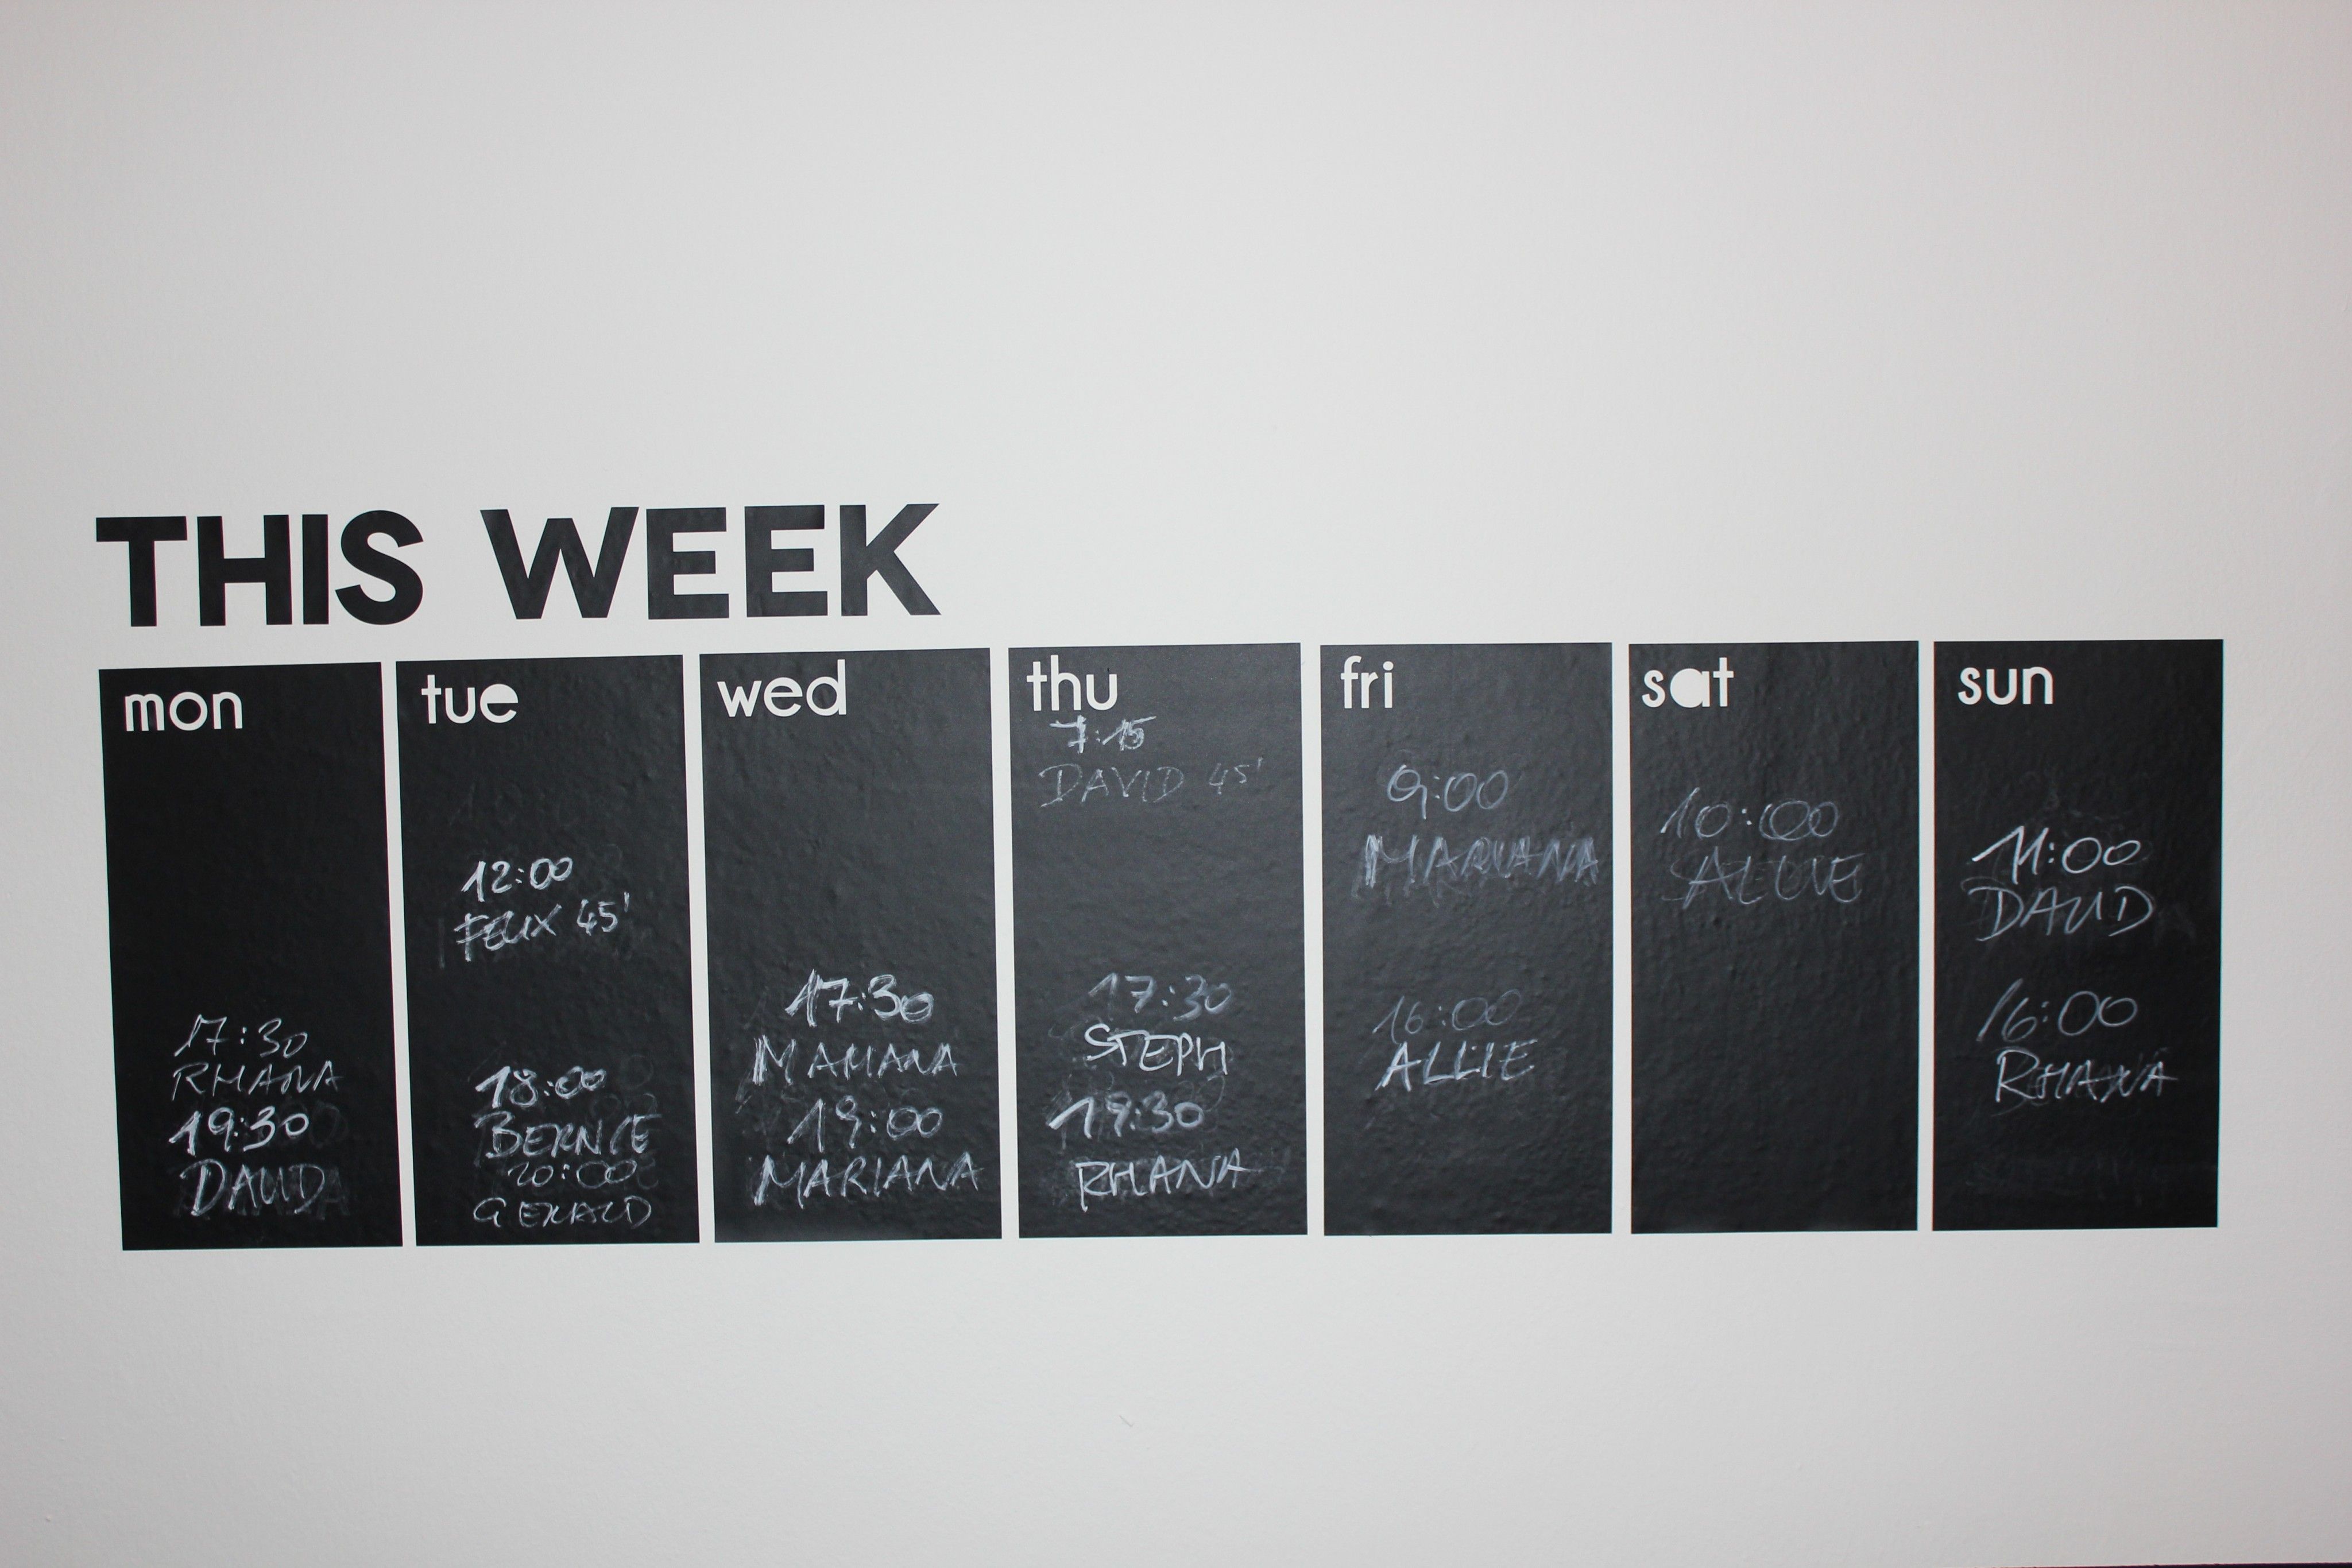 THIS WEEK
mon
17:30
RHANA
19:30
DAVID
tue
12:00
FELIX 45'
18:00
BERNIE
20:00
GERALD
wed
17:30
MARIANA
19:00
MARIANA
thu
7:15
DAVID 45'
17:30
STEPH
19:30
RHANA
fri
9:00
MARIANA
16:00
ALLIE
sat
10:00
ALLIE
sun
11:00
DAVID
16:00
RHANA